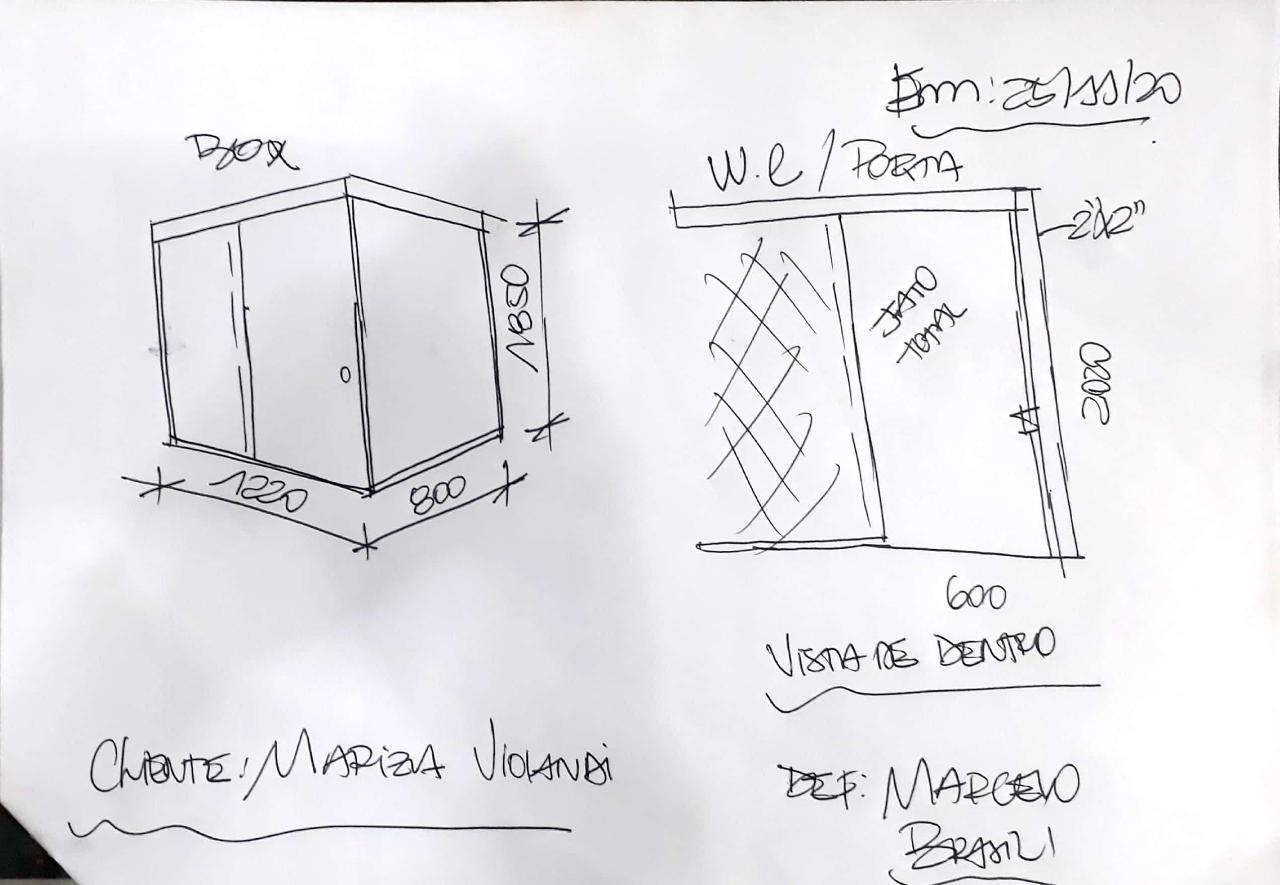 Em: 25/11/20
BOX
W.C / PORTA
2"x2"
1850
JATO
TOTAL
2020
1220
800
600
VISTA DE DENTRO
CLIENTE: MARIZA VIOLANDI
REF: MARCELO
BRASIL